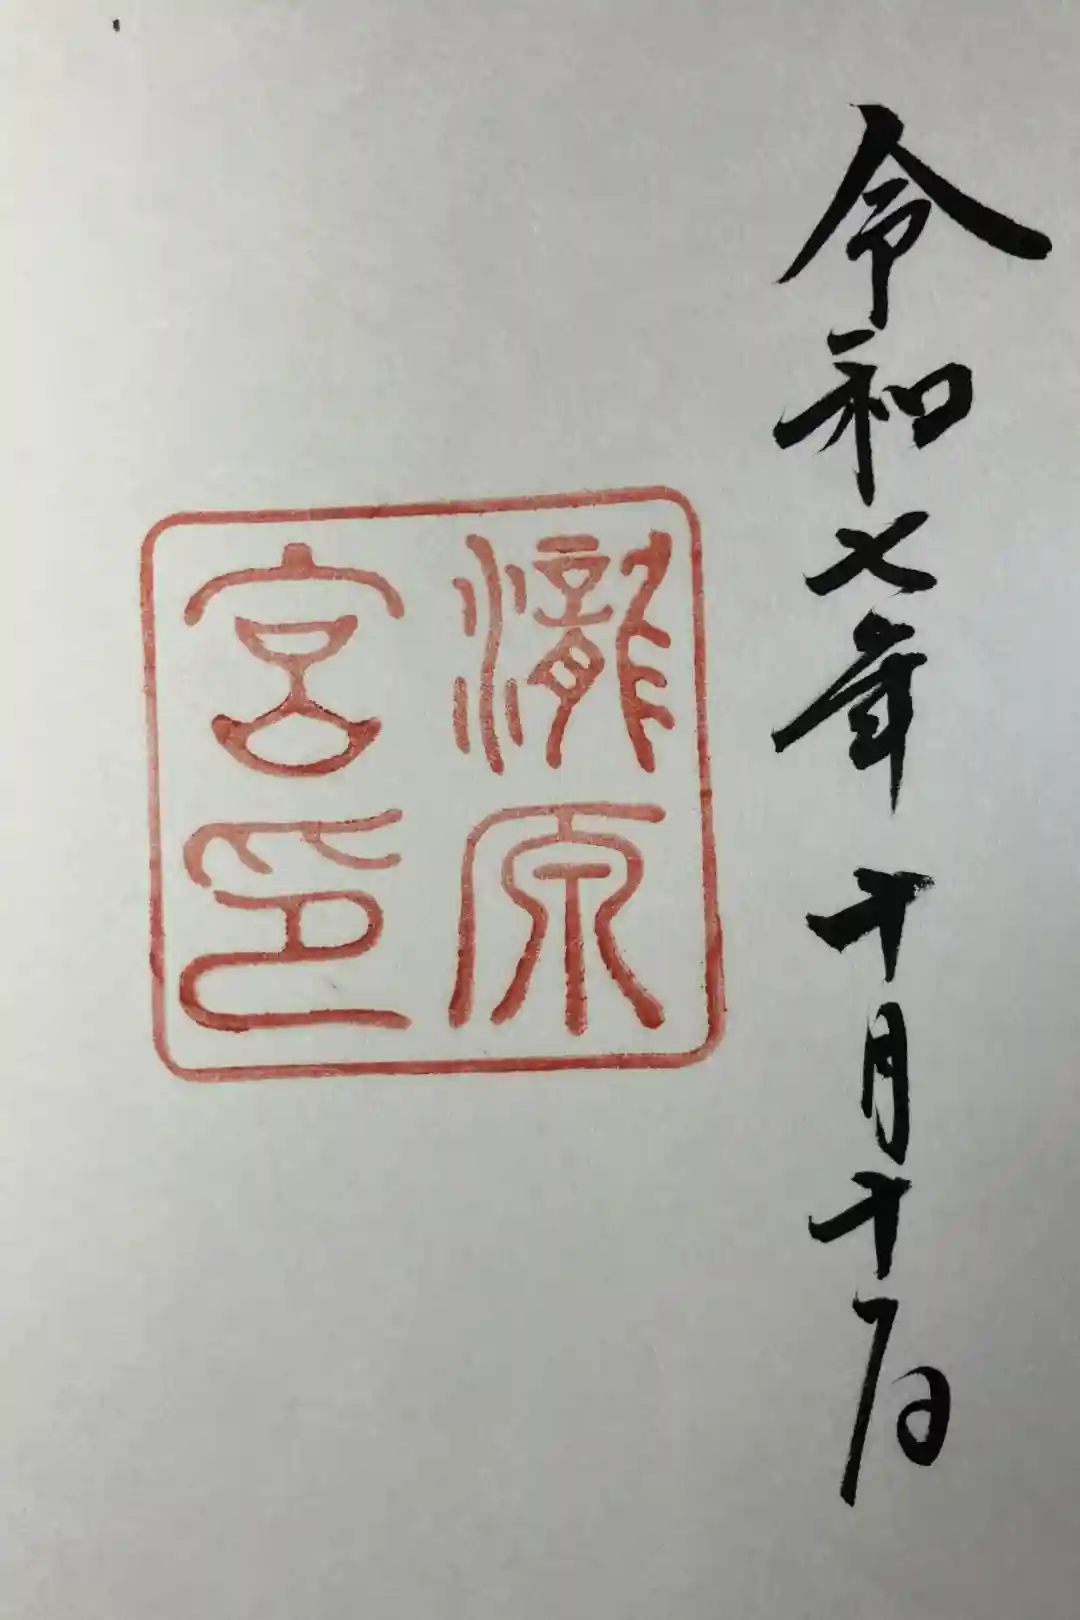 令和七年十月十日
瀧原
宮印